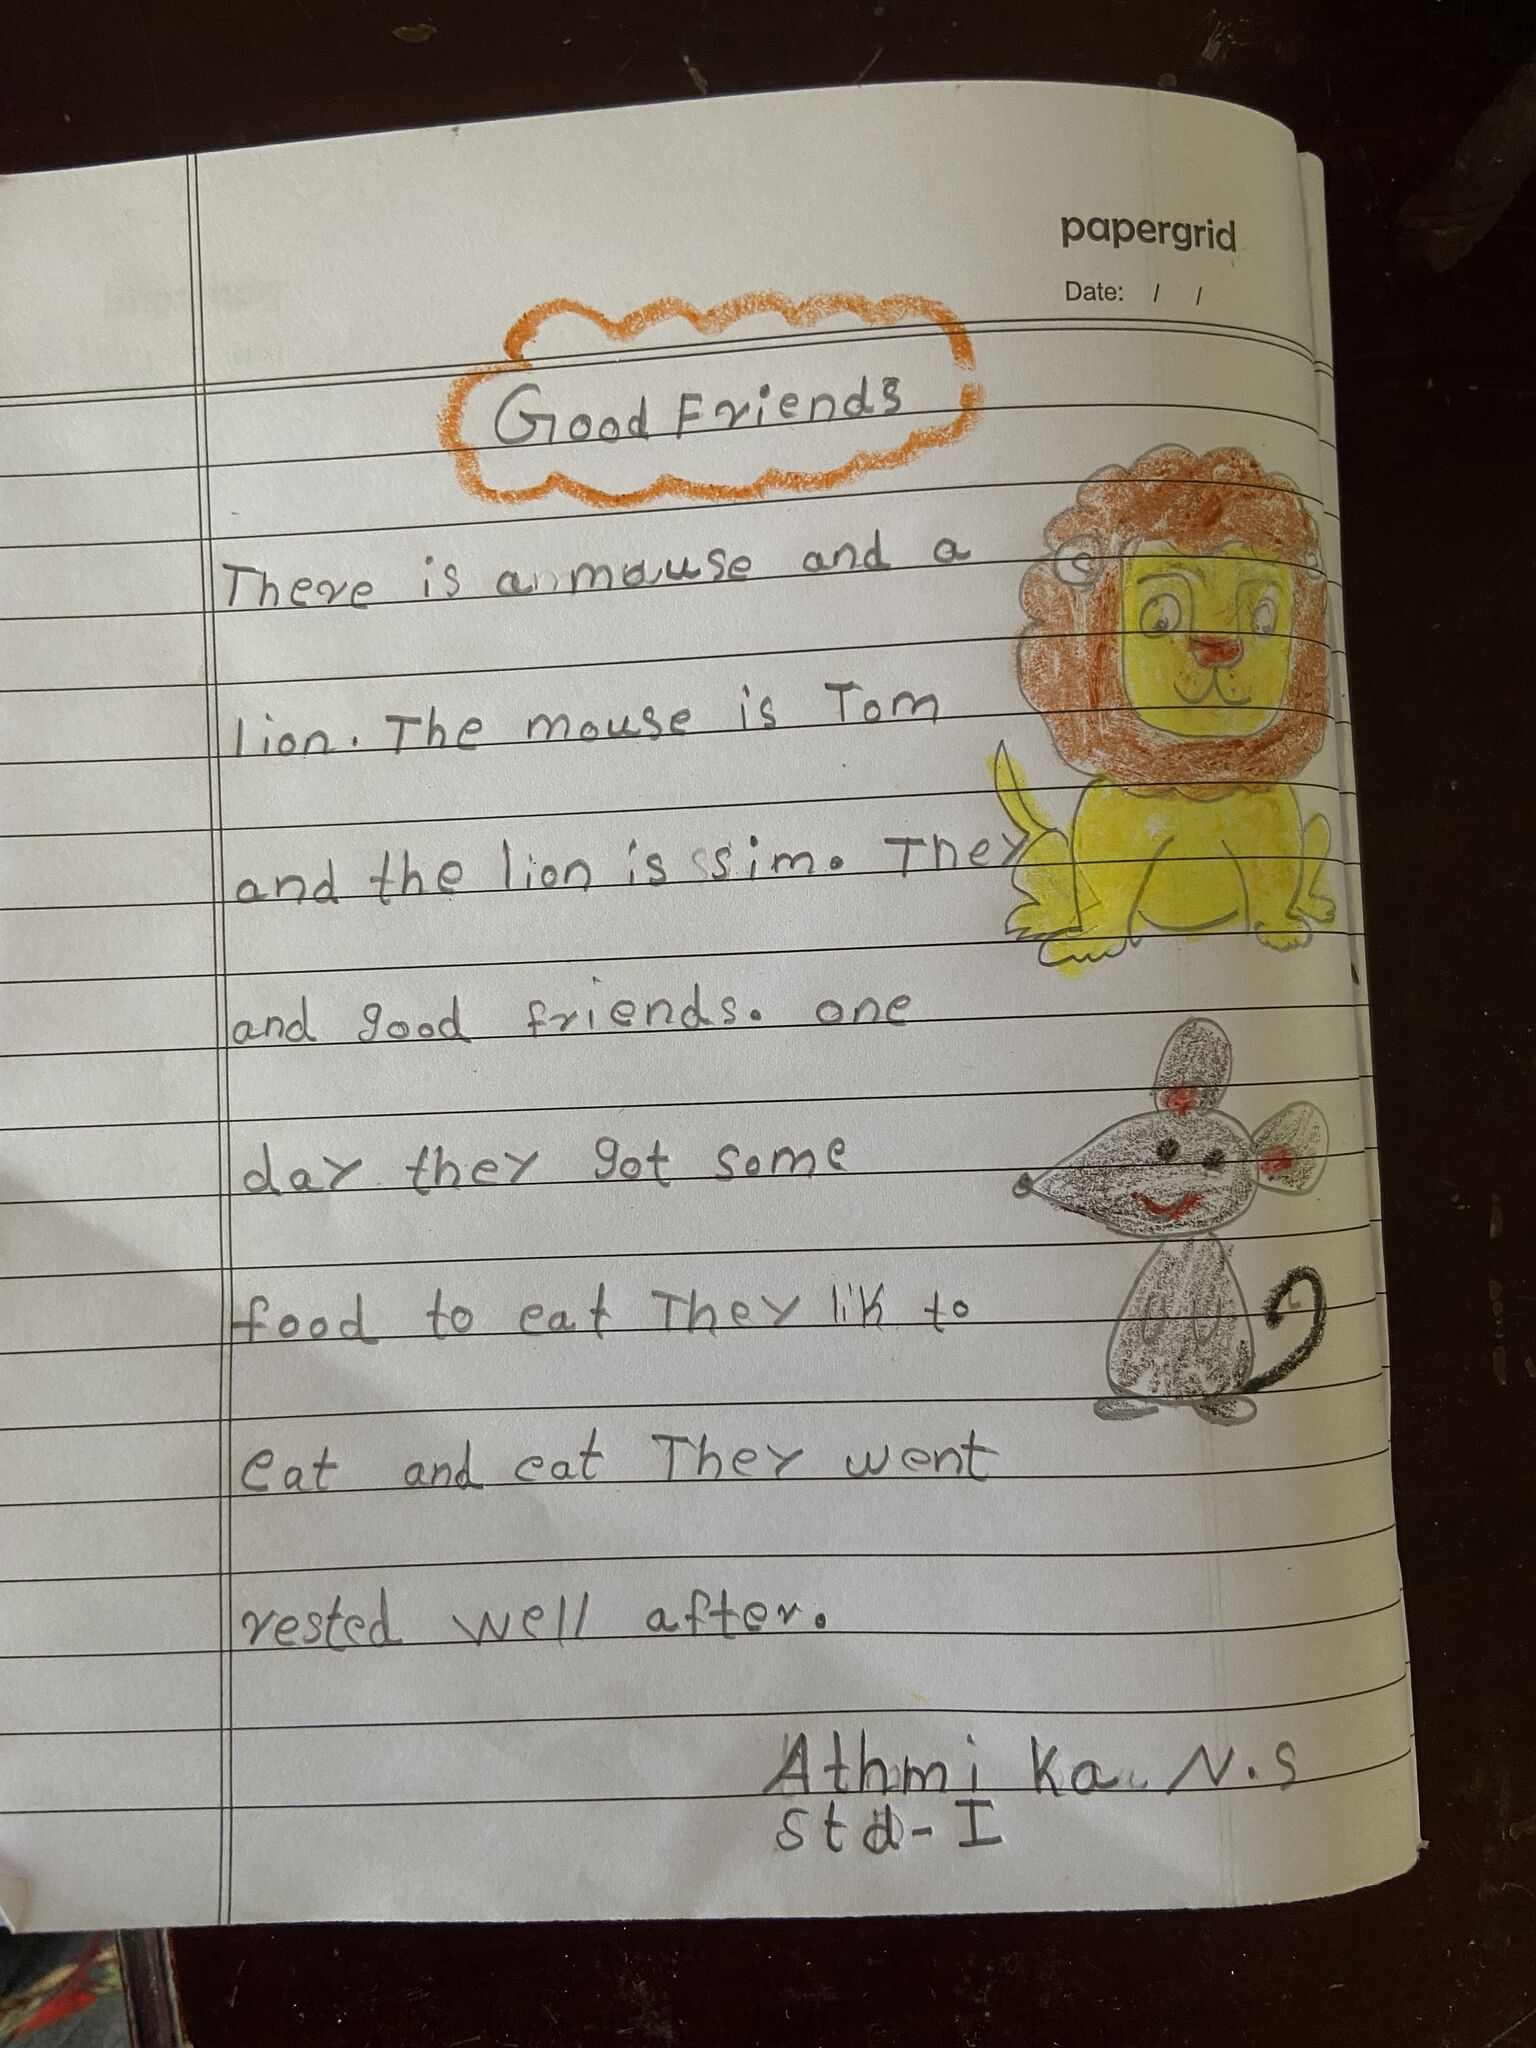 papergrid
Date: / /
Good Friends
There is a mouse and a
lion. The mouse is Tom
and the lion is sim. They
and good friends. one
day they got some
food to eat They lik to
eat and eat They went
rested well after.
Athmi ka N.S
Std-I